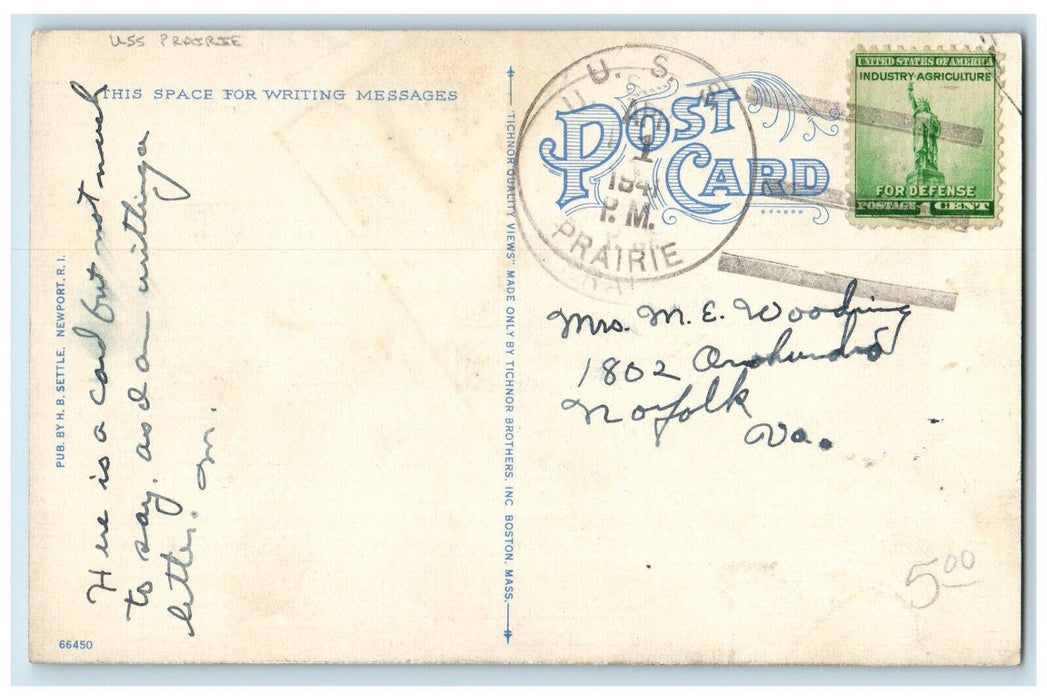 USS PRAIRIE
THIS SPACE FOR WRITING MESSAGES
Here is a card but not much
to say, as I am writing a
letter. M.
PUB. BY H. B. SETTLE, NEWPORT, R. I.
66450
"TICHNOR QUALITY VIEWS" MADE ONLY BY TICHNOR BROTHERS, INC BOSTON, MASS.
POST CARD
U. S. S.
1
1941
P. M.
PRAIRIE
UNITED STATES OF AMERICA
INDUSTRY-AGRICULTURE
FOR DEFENSE
POSTAGE 1 CENT
Mrs. M. E. Wooding
1802
Norfolk
Va.
5.00